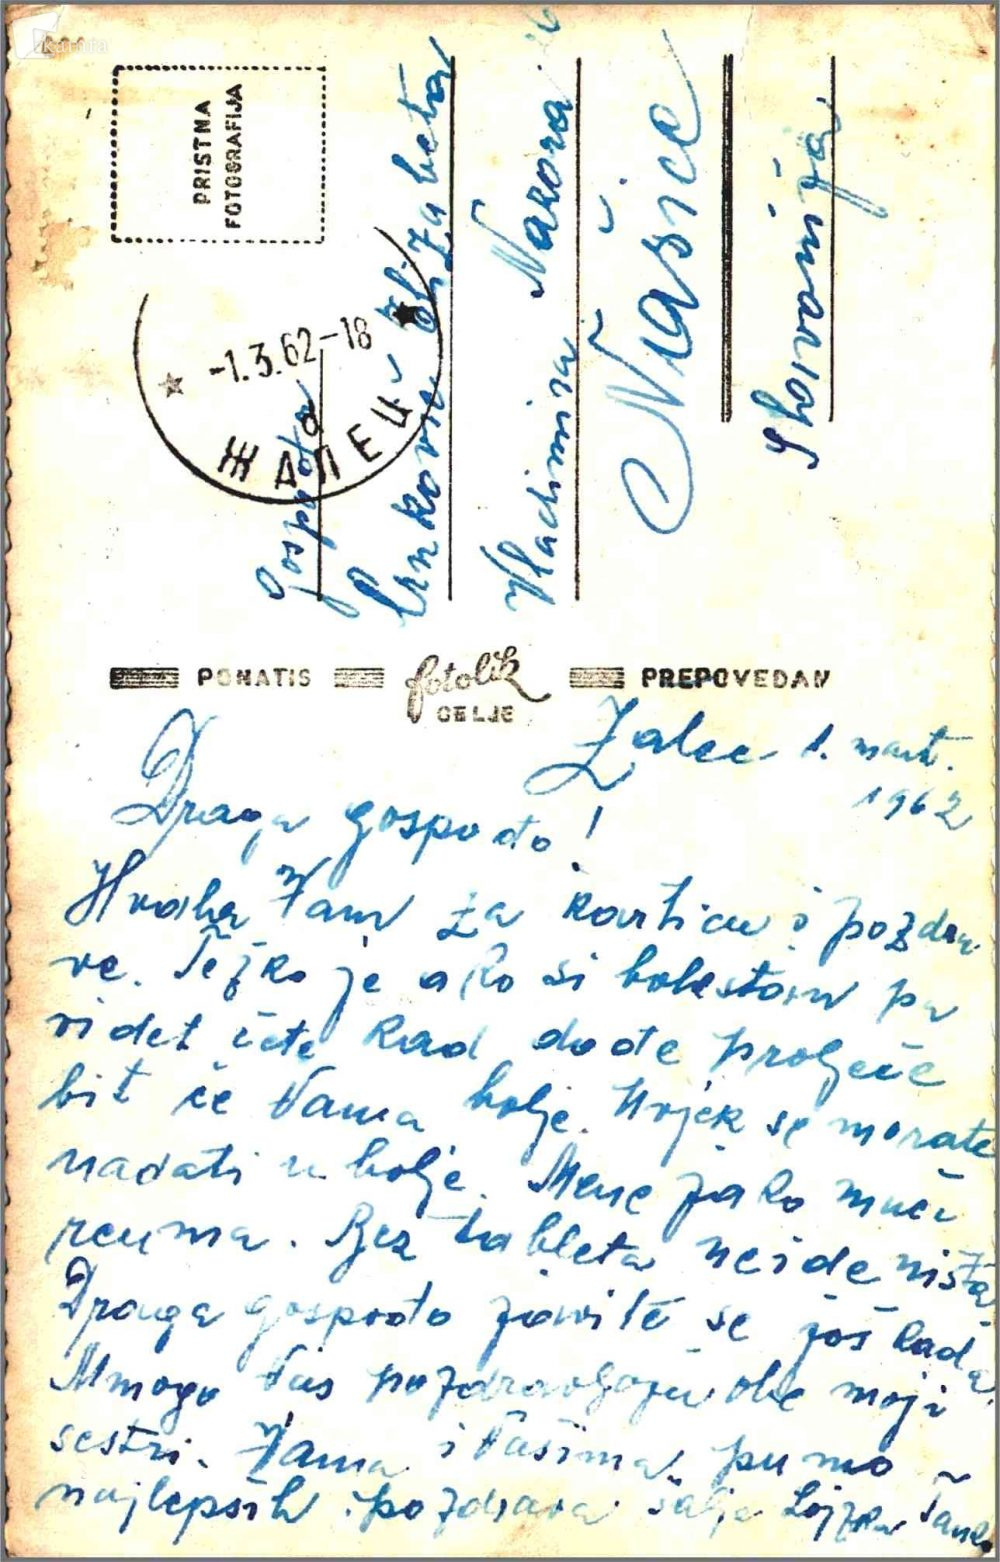 PRISTNA
FOTOGRAFIJA
-1.3.62-18
ЖАЛЕЦ
a
Gospođa
Crnković Elizabeta
Vladimira Nazora 26
Našice
Slavonija
PONATIS fotolik PREPOVEDAN
CELJE
Žalec 1. mart.
1962
Draga gospođo!
Hvala Vam za karticu i pozdra
ve. Teško je ako si bolestan pa
videt ćete kad dođe proljeće
bit će Vama bolje. Uvjek se morate
nadati u bolje. Mene jako muči
reuma. Bez tableta neide ništa
Draga gospođo javite se još kada,
Mnogo Vas pozdravljaju obe moji
sestri. Vama i Vašima puno
najlepših pozdrava šalje Lojzka